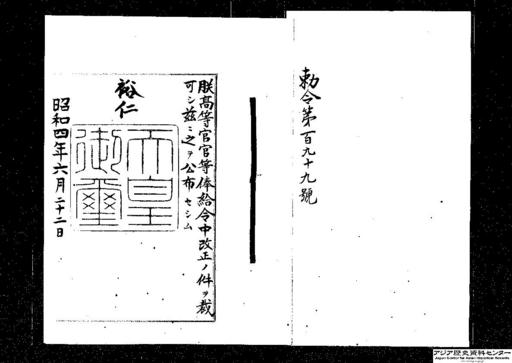 勅令第百九十九號
朕高等官官等俸給令中改正ノ件ヲ裁
可シ茲ニ之ヲ公布セシム
裕仁
天皇
御璽
昭和四年六月二十二日
アジア歴史資料センター
Japan Center for Asian Historical Records